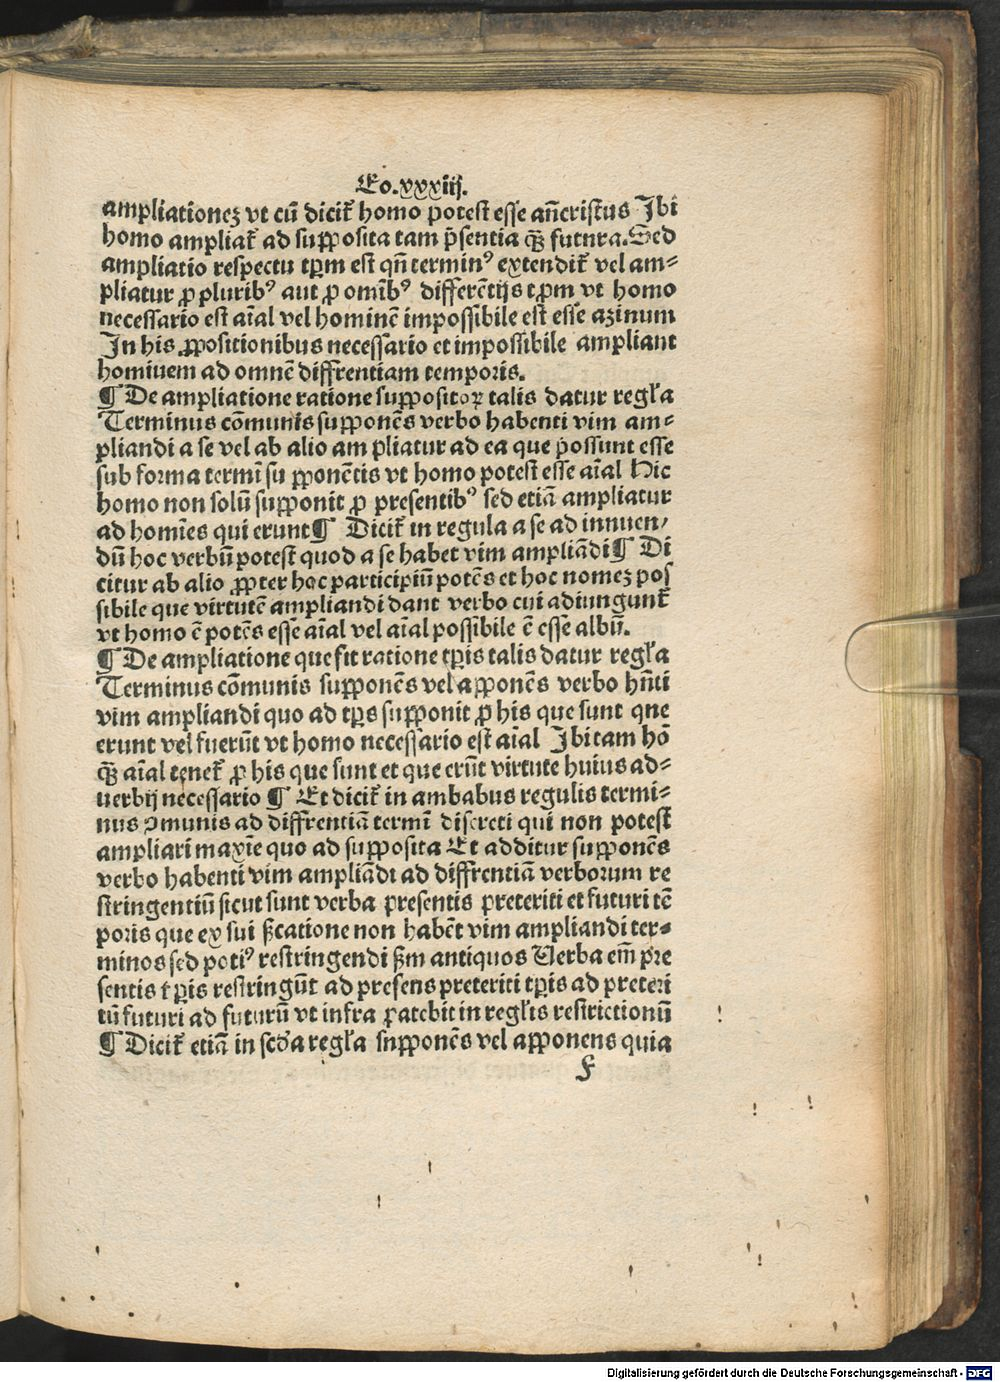 Fo.xxxiij.
ampliationez vt cū dicit᷑ homo potest esse an̄cristus Ibi
homo ampliat᷑ ad supposita tam p̄sentia qꝫ̄ futura. Sed
ampliatio respectu tp̄m est qn̄ terminꝰ extendit᷑ vel am⸗
pliatur ꝓ pluribꝰ aut ꝓ omībꝰ differētijs tp̄m vt homo
necessario est aīal vel hominē impossibile est esse azinum
In his ꝓpositionibus necessario et impossibile ampliant
homiuem ad omnē diffrentiam temporis.
¶ De ampliatione ratione suppositoꝝ talis datur regl'a
Terminus cōmunis supponēs verbo habenti vim am⸗
pliandi a se vel ab alio am pliatur ad ea que possunt esse
sub forma termī su pponētis vt homo potest esse aīal Hic
homo non solū supponit ꝓ presentibꝰ sed etiā ampliatur
ad homīes qui erunt¶ Dicit᷑ in regula a se ad innuen/
dū hoc verbū potest quod a se habet vim ampliādi¶ Di
citur ab alio ꝓpter hoc participiū potēs et hoc nomez pos
sibile que virtutē ampliandi dant verbo cui adiungunt᷑
vt homo ē potēs esse aīal vel aīal possibile ē esse albū.
¶ De ampliatione que fit ratione tp̄is talis datur regl'a
Terminus cōmunis supponēs vel apponēs verbo hn̄ti
vim ampliandi quo ad tp̄s supponit ꝓ his que sunt qne
erunt vel fuerūt vt homo necessario est aīal Ibi tam hō
qꝫ̄ aīal tenet᷑ ꝓ his que sunt et que erūt virtute huius ad⸗
uerbij necessario ¶ Et dicit᷑ in ambabus regulis termi⸗
nus ꝯmunis ad diffrentiā termī discreti qui non potest
ampliari maxīe quo ad supposita Et additur supponēs
verbo habenti vim ampliādi ad diffrentiā verborum re
stringentiū sicut sunt verba presentis preteriti et futuri tē
poris que ex sui ẜcatione non habēt vim ampliandi ter⸗
minos sed potiꝰ restringendi ẜm antiquos Verba em̄ pre
sentis tp̄is restringūt ad presens preteriti tp̄is ad preteri
tū futuri ad futurū vt infra patebit in regl'is restrictionū
¶ Dicit᷑ etiā in scd'a regl'a supponēs vel apponens quia
F
Digitalisierung gefördert durch die Deutsche Forschungsgemeinschaft - DFG